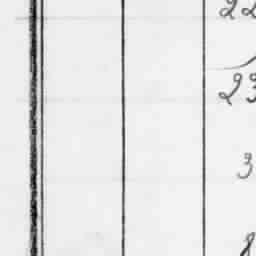 22
23
3
8